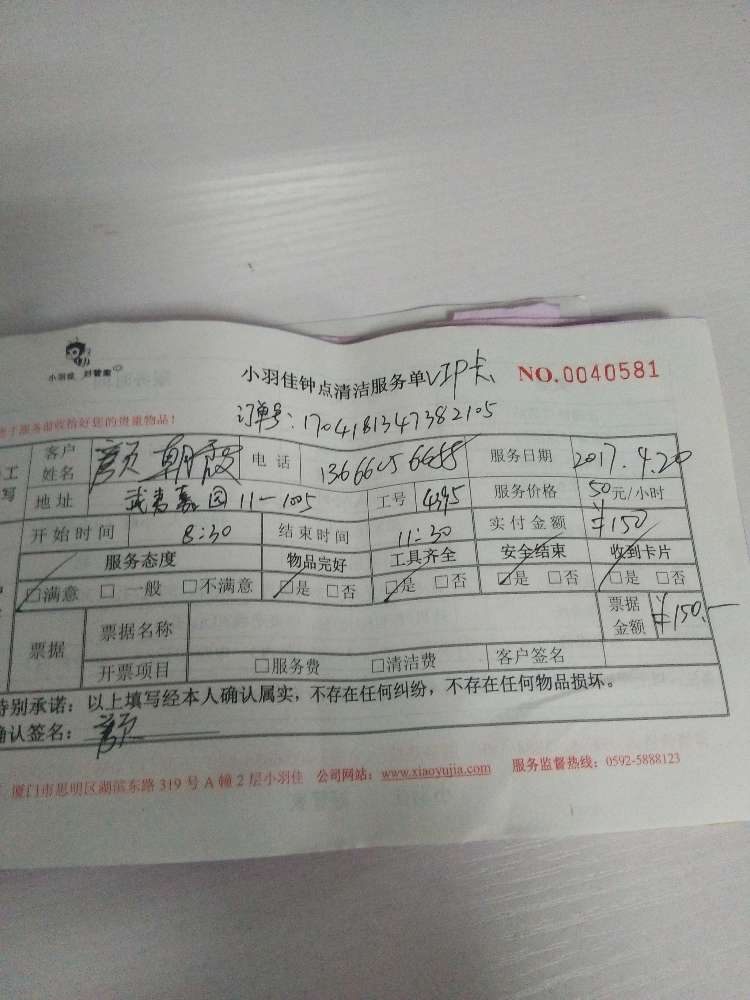 小羽佳 好管家
小羽佳钟点清洁服务单VIP卡 NO.0040581
服务前收拾好您的贵重物品!
订单号:1704181347382105
工 客户姓名 颜朝霞 电话 服务日期 2017.4.20
写 地址 11-1005 工号 4395 服务价格 50元/小时
开始时间 8:30 结束时间 11:30 实付金额 ¥150
服务态度 物品完好 工具齐全 安全结束 收到卡片
☑满意 □一般 □不满意 ☑是 □否 ☑是 □否 ☑是 □否 ☑是 □否
票据 票据名称 票据金额 ¥150.-
开票项目 □服务费 □清洁费 客户签名
特别承诺:以上填写经本人确认属实,不存在任何纠纷,不存在任何物品损坏。
确认签名:颜
厦门市思明区湖滨东路319号A幢2层小羽佳 公司网站:www.xiaoyujia.com 服务监督热线:0592-5888123